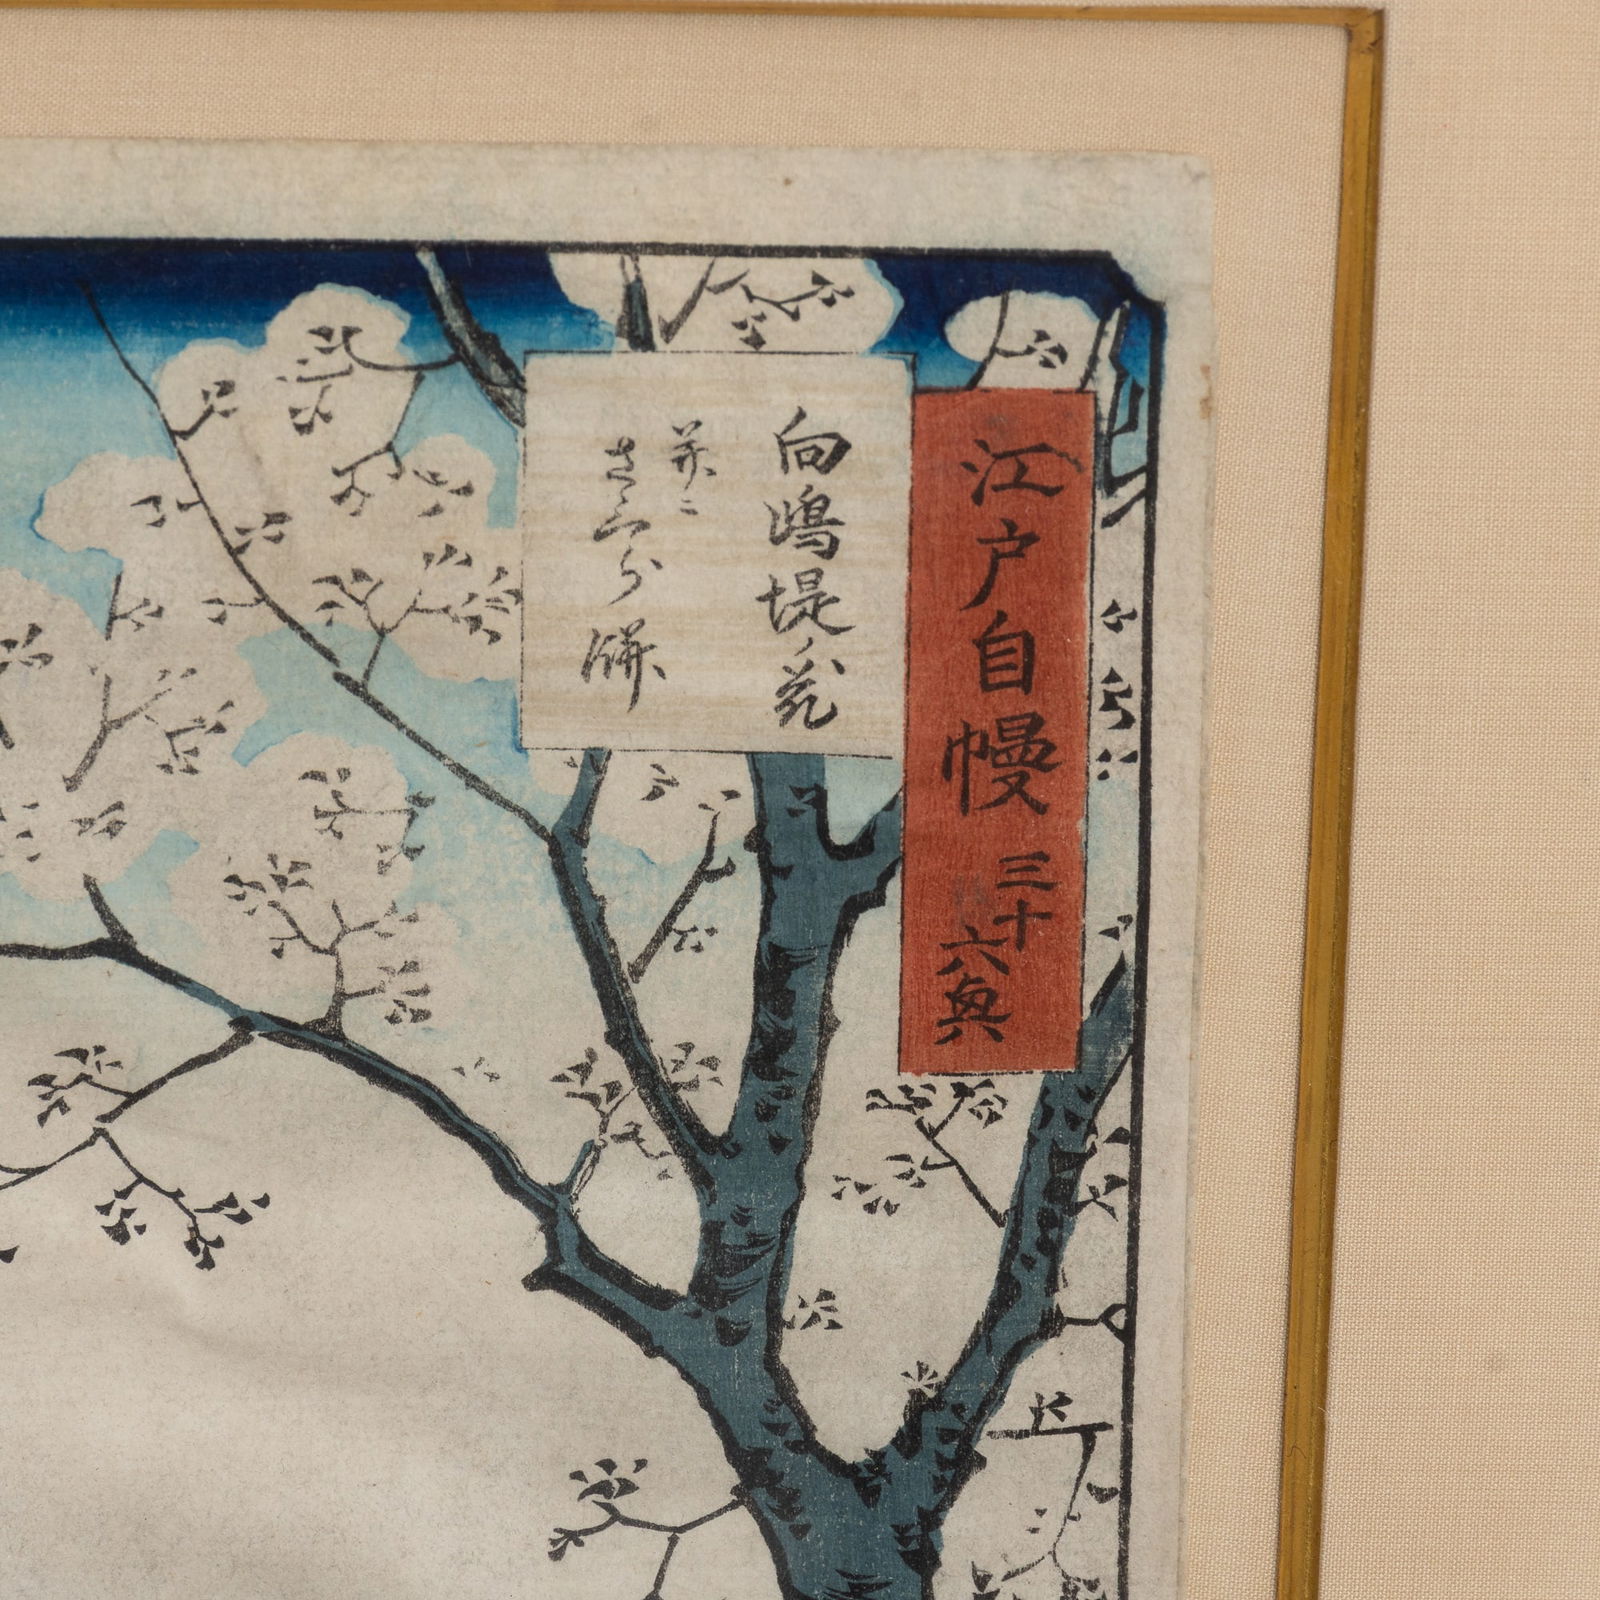 江戸自慢三十六興
向嶋堤ノ花
并ニ
さくら餅